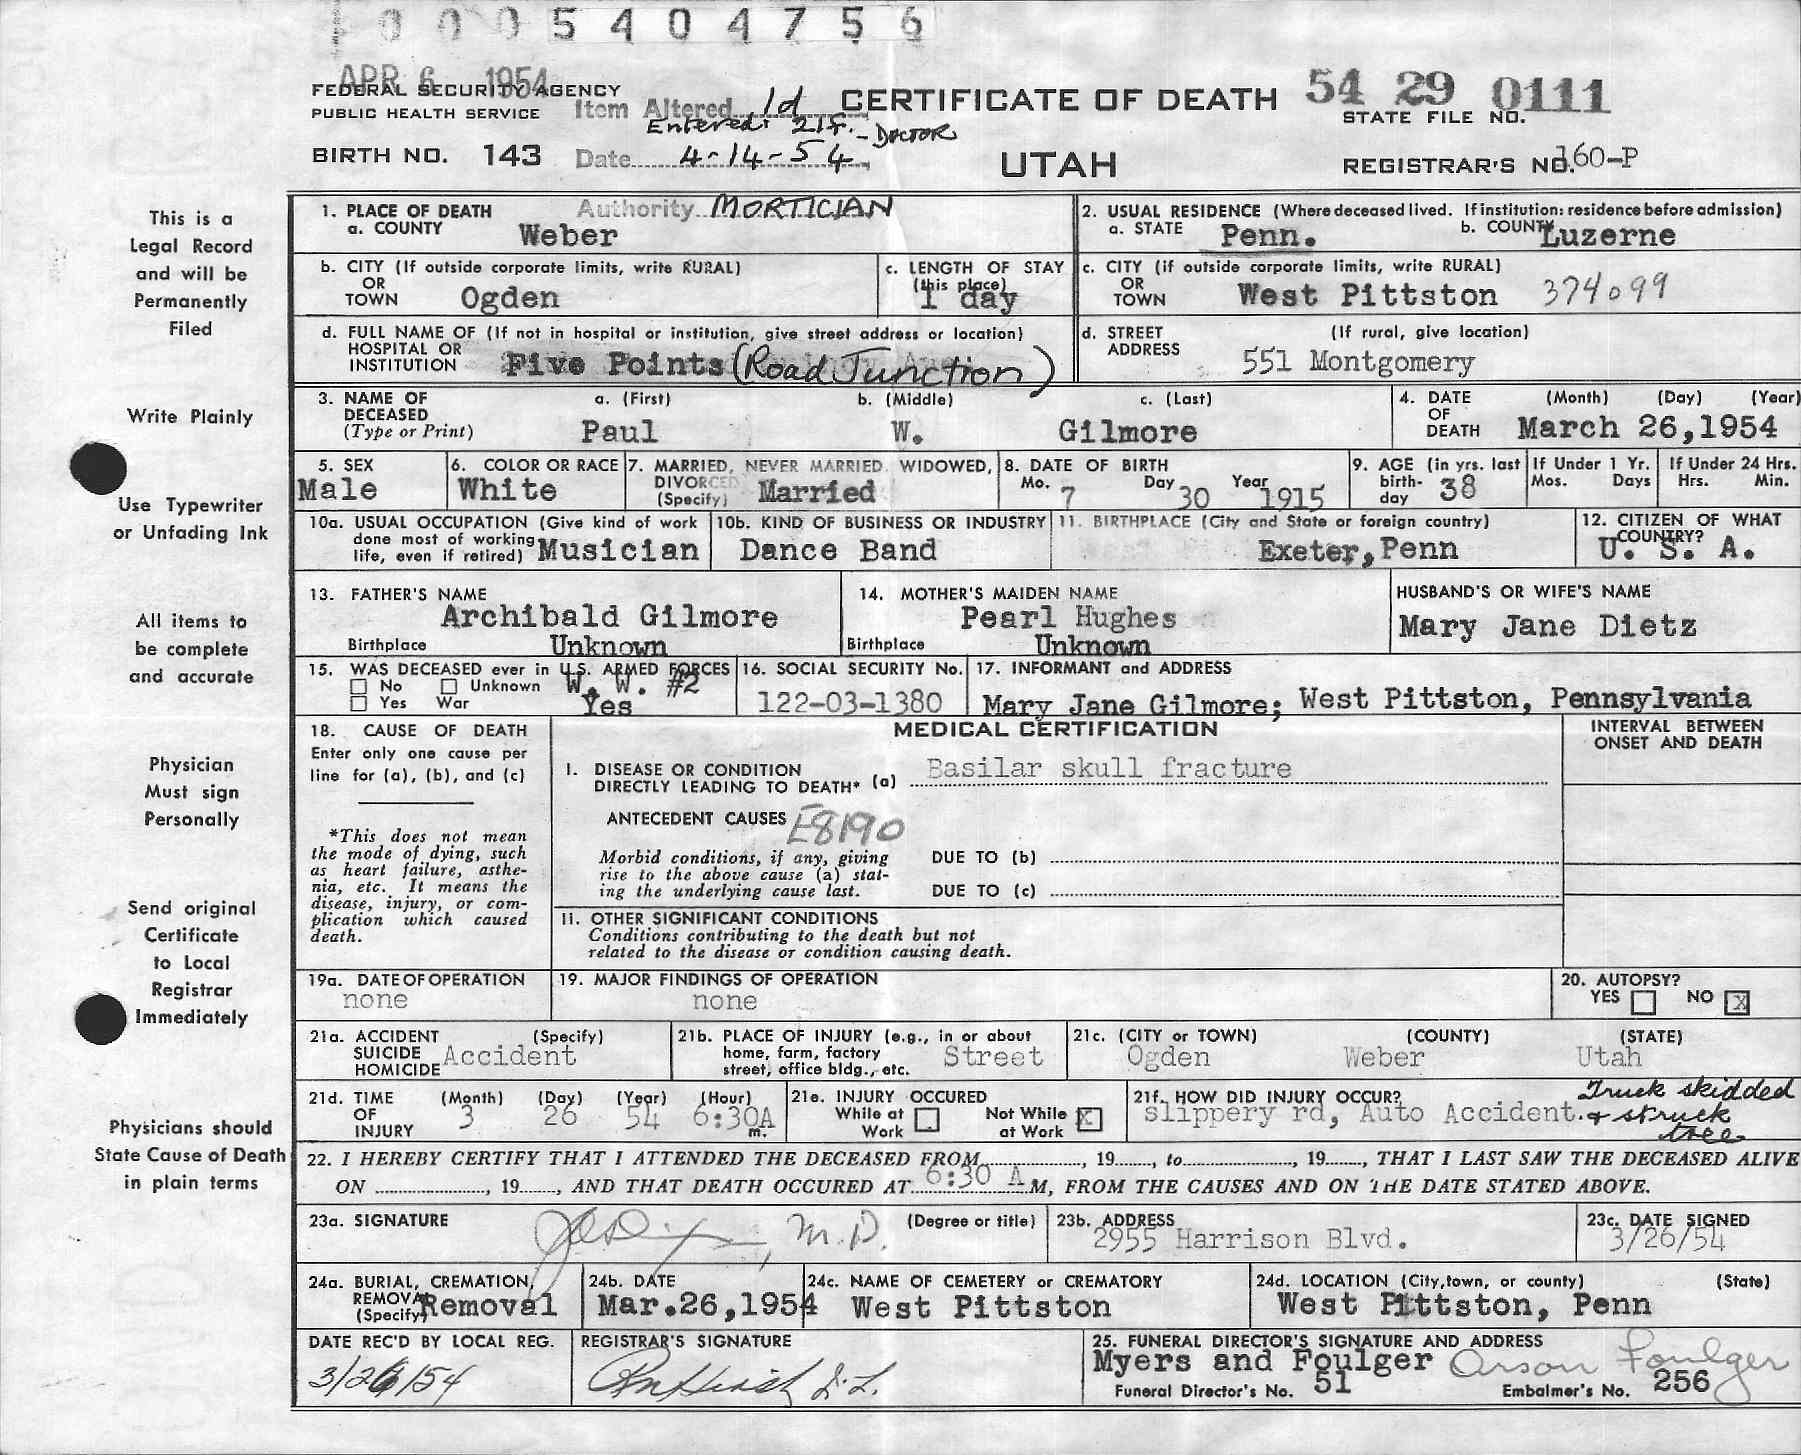 0005404756
APR 6 1954
FEDERAL SECURITY AGENCY
PUBLIC HEALTH SERVICE
Item Altered 1d
Entered: 21f. - DOCTOR
CERTIFICATE OF DEATH
54 29 0111
STATE FILE NO.
BIRTH NO. 143
Date 4-14-54
UTAH
REGISTRAR'S NO. 160-P
Authority MORTICIAN
This is a
Legal Record
and will be
Permanently
Filed
1. PLACE OF DEATH
a. COUNTY Weber
2. USUAL RESIDENCE (Where deceased lived. If institution: residence before admission)
a. STATE Penn. b. COUNTY Luzerne
b. CITY (If outside corporate limits, write RURAL)
OR
TOWN Ogden
c. LENGTH OF STAY
(this place)
1 day
c. CITY (if outside corporate limits, write RURAL)
OR
TOWN West Pittston 374099
d. FULL NAME OF (If not in hospital or institution, give street address or location)
HOSPITAL OR
INSTITUTION Five Points (Road Junction)
d. STREET (If rural, give location)
ADDRESS 551 Montgomery
Write Plainly
3. NAME OF a. (First) b. (Middle) c. (Last)
DECEASED
(Type or Print) Paul W. Gilmore
4. DATE (Month) (Day) (Year)
OF
DEATH March 26,1954
Use Typewriter
or Unfading Ink
5. SEX
Male
6. COLOR OR RACE
White
7. MARRIED, NEVER MARRIED, WIDOWED,
DIVORCED
(Specify) Married
8. DATE OF BIRTH
Mo. 7 Day 30 Year 1915
9. AGE (in yrs. last
birth-
day 38
If Under 1 Yr.
Mos. Days
If Under 24 Hrs.
Hrs. Min.
10a. USUAL OCCUPATION (Give kind of work
done most of working
life, even if retired) Musician
10b. KIND OF BUSINESS OR INDUSTRY
Dance Band
11. BIRTHPLACE (City and State or foreign country)
Exeter, Penn
12. CITIZEN OF WHAT
COUNTRY?
U. S. A.
All items to
be complete
and accurate
13. FATHER'S NAME
Archibald Gilmore
Birthplace Unknown
14. MOTHER'S MAIDEN NAME
Pearl Hughes
Birthplace Unknown
HUSBAND'S OR WIFE'S NAME
Mary Jane Dietz
15. WAS DECEASED ever in U.S. ARMED FORCES
No Unknown W. W. #2
Yes War Yes
16. SOCIAL SECURITY No.
122-03-1380
17. INFORMANT and ADDRESS
Mary Jane Gilmore; West Pittston, Pennsylvania
Physician
Must sign
Personally
18. CAUSE OF DEATH
Enter only one cause per
line for (a), (b), and (c)
*This does not mean
the mode of dying, such
as heart failure, asthe-
nia, etc. It means the
disease, injury, or com-
plication which caused
death.
MEDICAL CERTIFICATION
INTERVAL BETWEEN
ONSET AND DEATH
I. DISEASE OR CONDITION
DIRECTLY LEADING TO DEATH* (a) Basilar skull fracture
ANTECEDENT CAUSES E8190
Morbid conditions, if any, giving
rise to the above cause (a) stat-
ing the underlying cause last.
DUE TO (b)
DUE TO (c)
II. OTHER SIGNIFICANT CONDITIONS
Conditions contributing to the death but not
related to the disease or condition causing death.
Send original
Certificate
to Local
Registrar
Immediately
19a. DATE OF OPERATION
none
19. MAJOR FINDINGS OF OPERATION
none
20. AUTOPSY?
YES NO X
21a. ACCIDENT (Specify)
SUICIDE
HOMICIDE Accident
21b. PLACE OF INJURY (e.g., in or about
home, farm, factory
street, office bldg., etc. Street
21c. (CITY or TOWN) (COUNTY) (STATE)
Ogden Weber Utah
21d. TIME (Month) (Day) (Year) (Hour)
OF
INJURY 3 26 54 6:30A m.
21e. INJURY OCCURED
While at
Work
Not While
at Work X
21f. HOW DID INJURY OCCUR?
slippery rd, Auto Accident. Truck skidded
& struck
tree
Physicians should
State Cause of Death
in plain terms
22. I HEREBY CERTIFY THAT I ATTENDED THE DECEASED FROM , 19 , to , 19 , THAT I LAST SAW THE DECEASED ALIVE
ON , 19 , AND THAT DEATH OCCURED AT 6:30 A M, FROM THE CAUSES AND ON THE DATE STATED ABOVE.
23a. SIGNATURE M.D. (Degree or title)
23b. ADDRESS
2955 Harrison Blvd.
23c. DATE SIGNED
3/26/54
24a. BURIAL, CREMATION,
REMOVAL
(Specify) Removal
24b. DATE
Mar.26,1954
24c. NAME OF CEMETERY or CREMATORY
West Pittston
24d. LOCATION (City, town, or county) (State)
West Pittston, Penn
DATE REC'D BY LOCAL REG.
3/26/54
REGISTRAR'S SIGNATURE
25. FUNERAL DIRECTOR'S SIGNATURE AND ADDRESS
Myers and Foulger Orson Foulger
Funeral Director's No. 51 Embalmer's No. 256